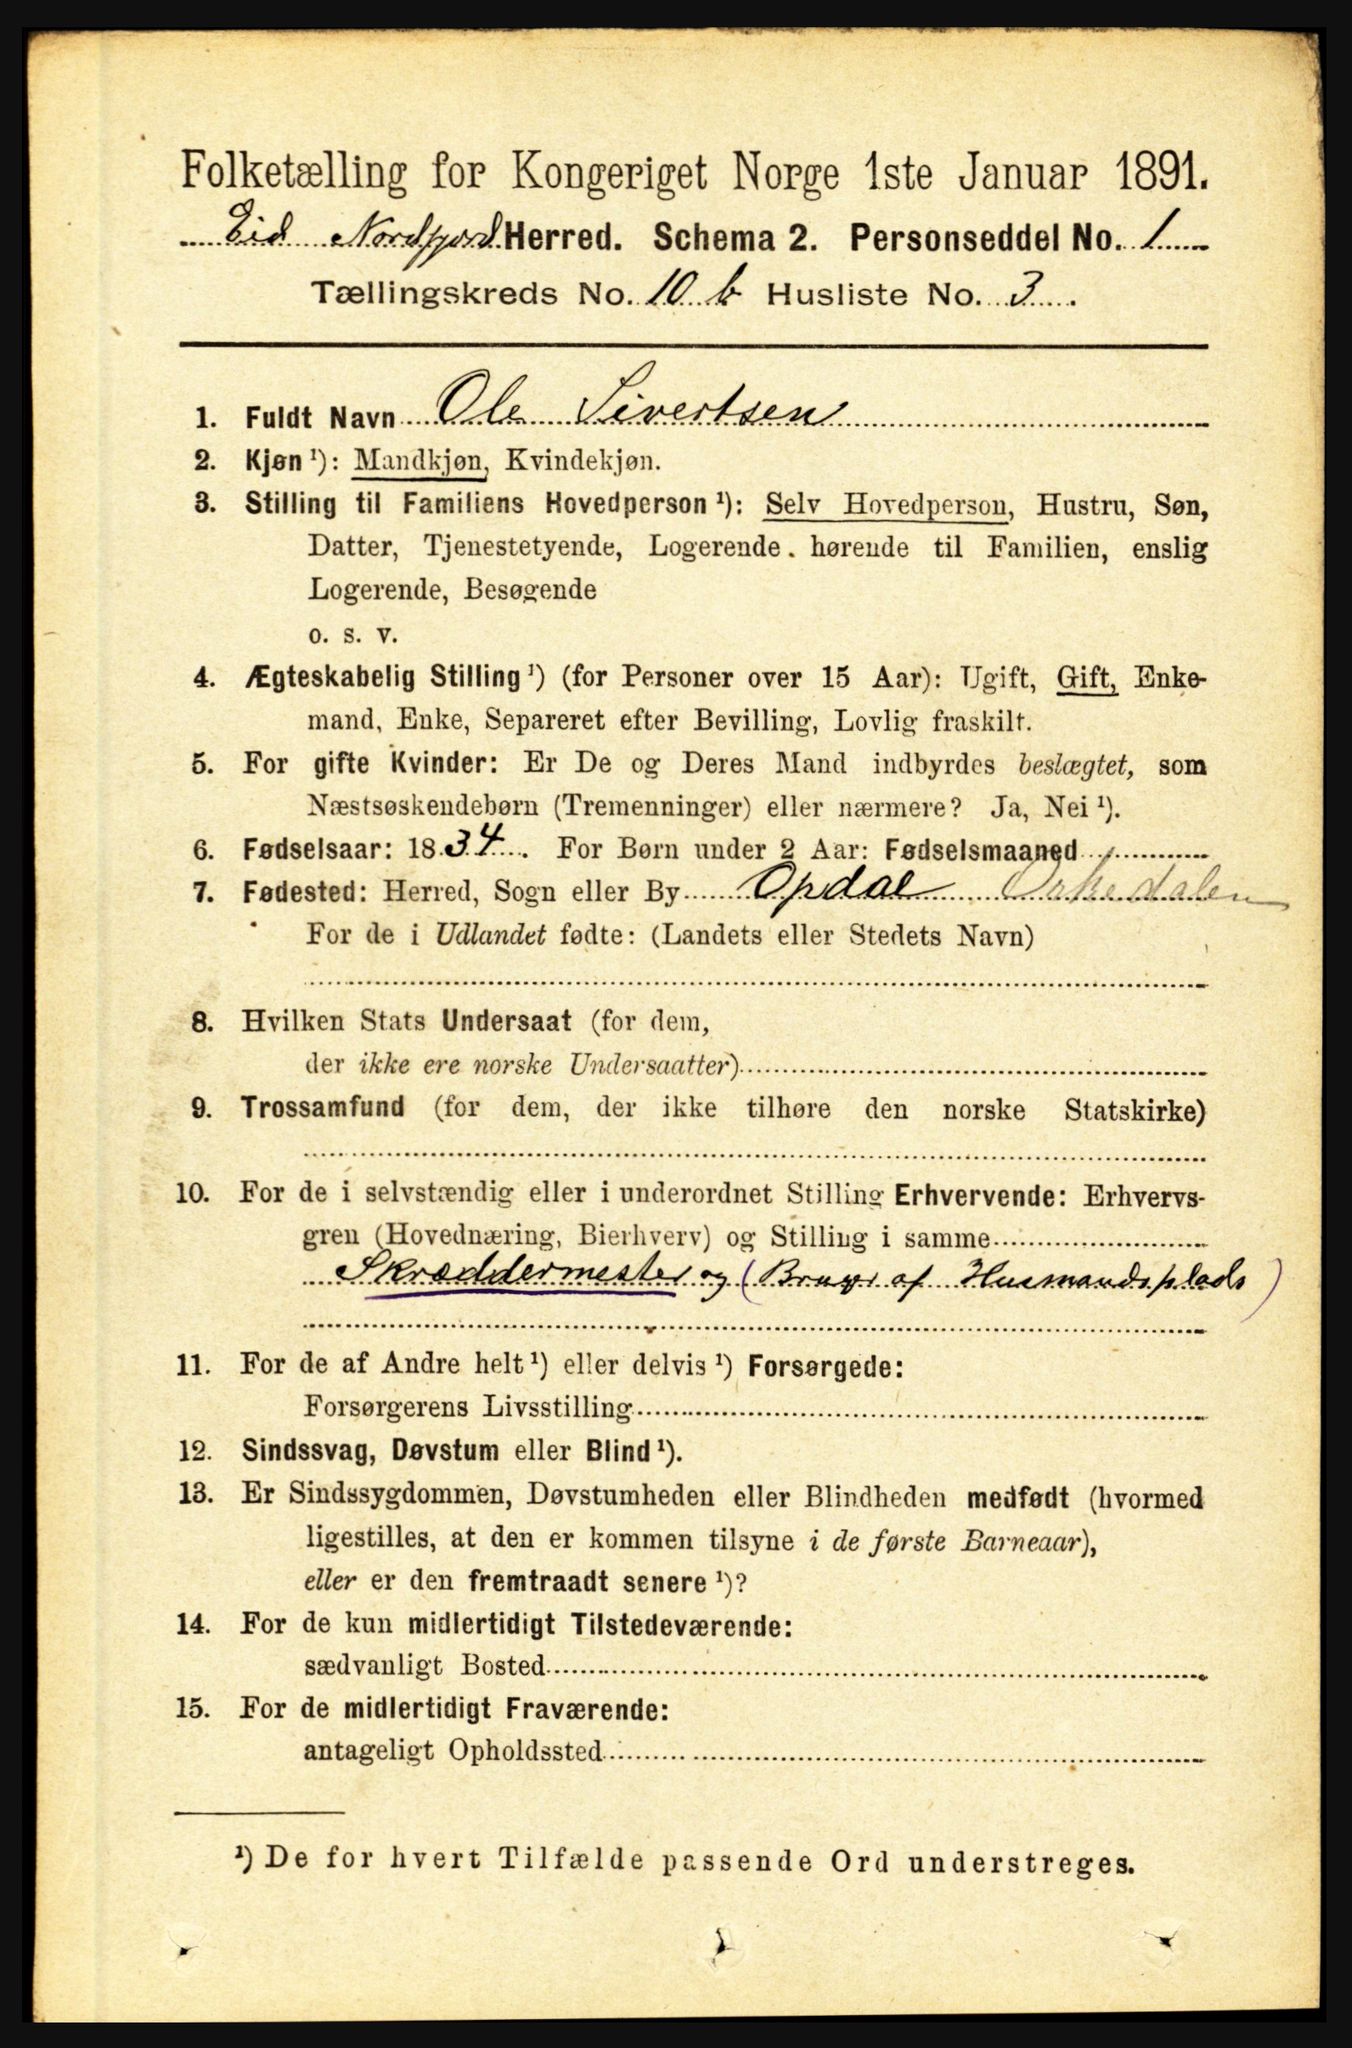 Folketælling for Kongeriget Norge 1ste Januar 1891.
Eid Nordfjord Herred. Schema 2. Personseddel No. 1
Tællingskreds No. 10 b Husliste No. 3.
1. Fuldt Navn Ole Sivertsen
2. Kjøn ¹): Mandkjøn, Kvindekjøn.
3. Stilling til Familiens Hovedperson ¹): Selv Hovedperson, Hustru, Søn,
Datter, Tjenestetyende, Logerende hørende til Familien, enslig
Logerende, Besøgende
o. s. v.
4. Ægteskabelig Stilling ¹) (for Personer over 15 Aar): Ugift, Gift, Enke-
mand, Enke, Separeret efter Bevilling, Lovlig fraskilt.
5. For gifte Kvinder: Er De og Deres Mand indbyrdes beslægtet, som
Næstsøskendebørn (Tremenninger) eller nærmere? Ja, Nei ¹).
6. Fødselsaar: 1834. For Børn under 2 Aar: Fødselsmaaned
7. Fødested: Herred, Sogn eller By Opdal Orkedalen
For de i Udlandet fødte: (Landets eller Stedets Navn)
8. Hvilken Stats Undersaat (for dem,
der ikke ere norske Undersaatter)
9. Trossamfund (for dem, der ikke tilhøre den norske Statskirke)
10. For de i selvstændig eller i underordnet Stilling Erhvervende: Erhvervs-
gren (Hovednæring, Bierhverv) og Stilling i samme
Skræddermester og (Bruger af Husmandsplads)
11. For de af Andre helt ¹) eller delvis ¹) Forsørgede:
Forsørgerens Livsstilling
12. Sindssvag, Døvstum eller Blind ¹).
13. Er Sindssygdommen, Døvstumheden eller Blindheden medfødt (hvormed
ligestilles, at den er kommen tilsyne i de første Barneaar),
eller er den fremtraadt senere ¹)?
14. For de kun midlertidigt Tilstedeværende:
sædvanligt Bosted
15. For de midlertidigt Fraværende:
antageligt Opholdssted
¹) De for hvert Tilfælde passende Ord understreges.